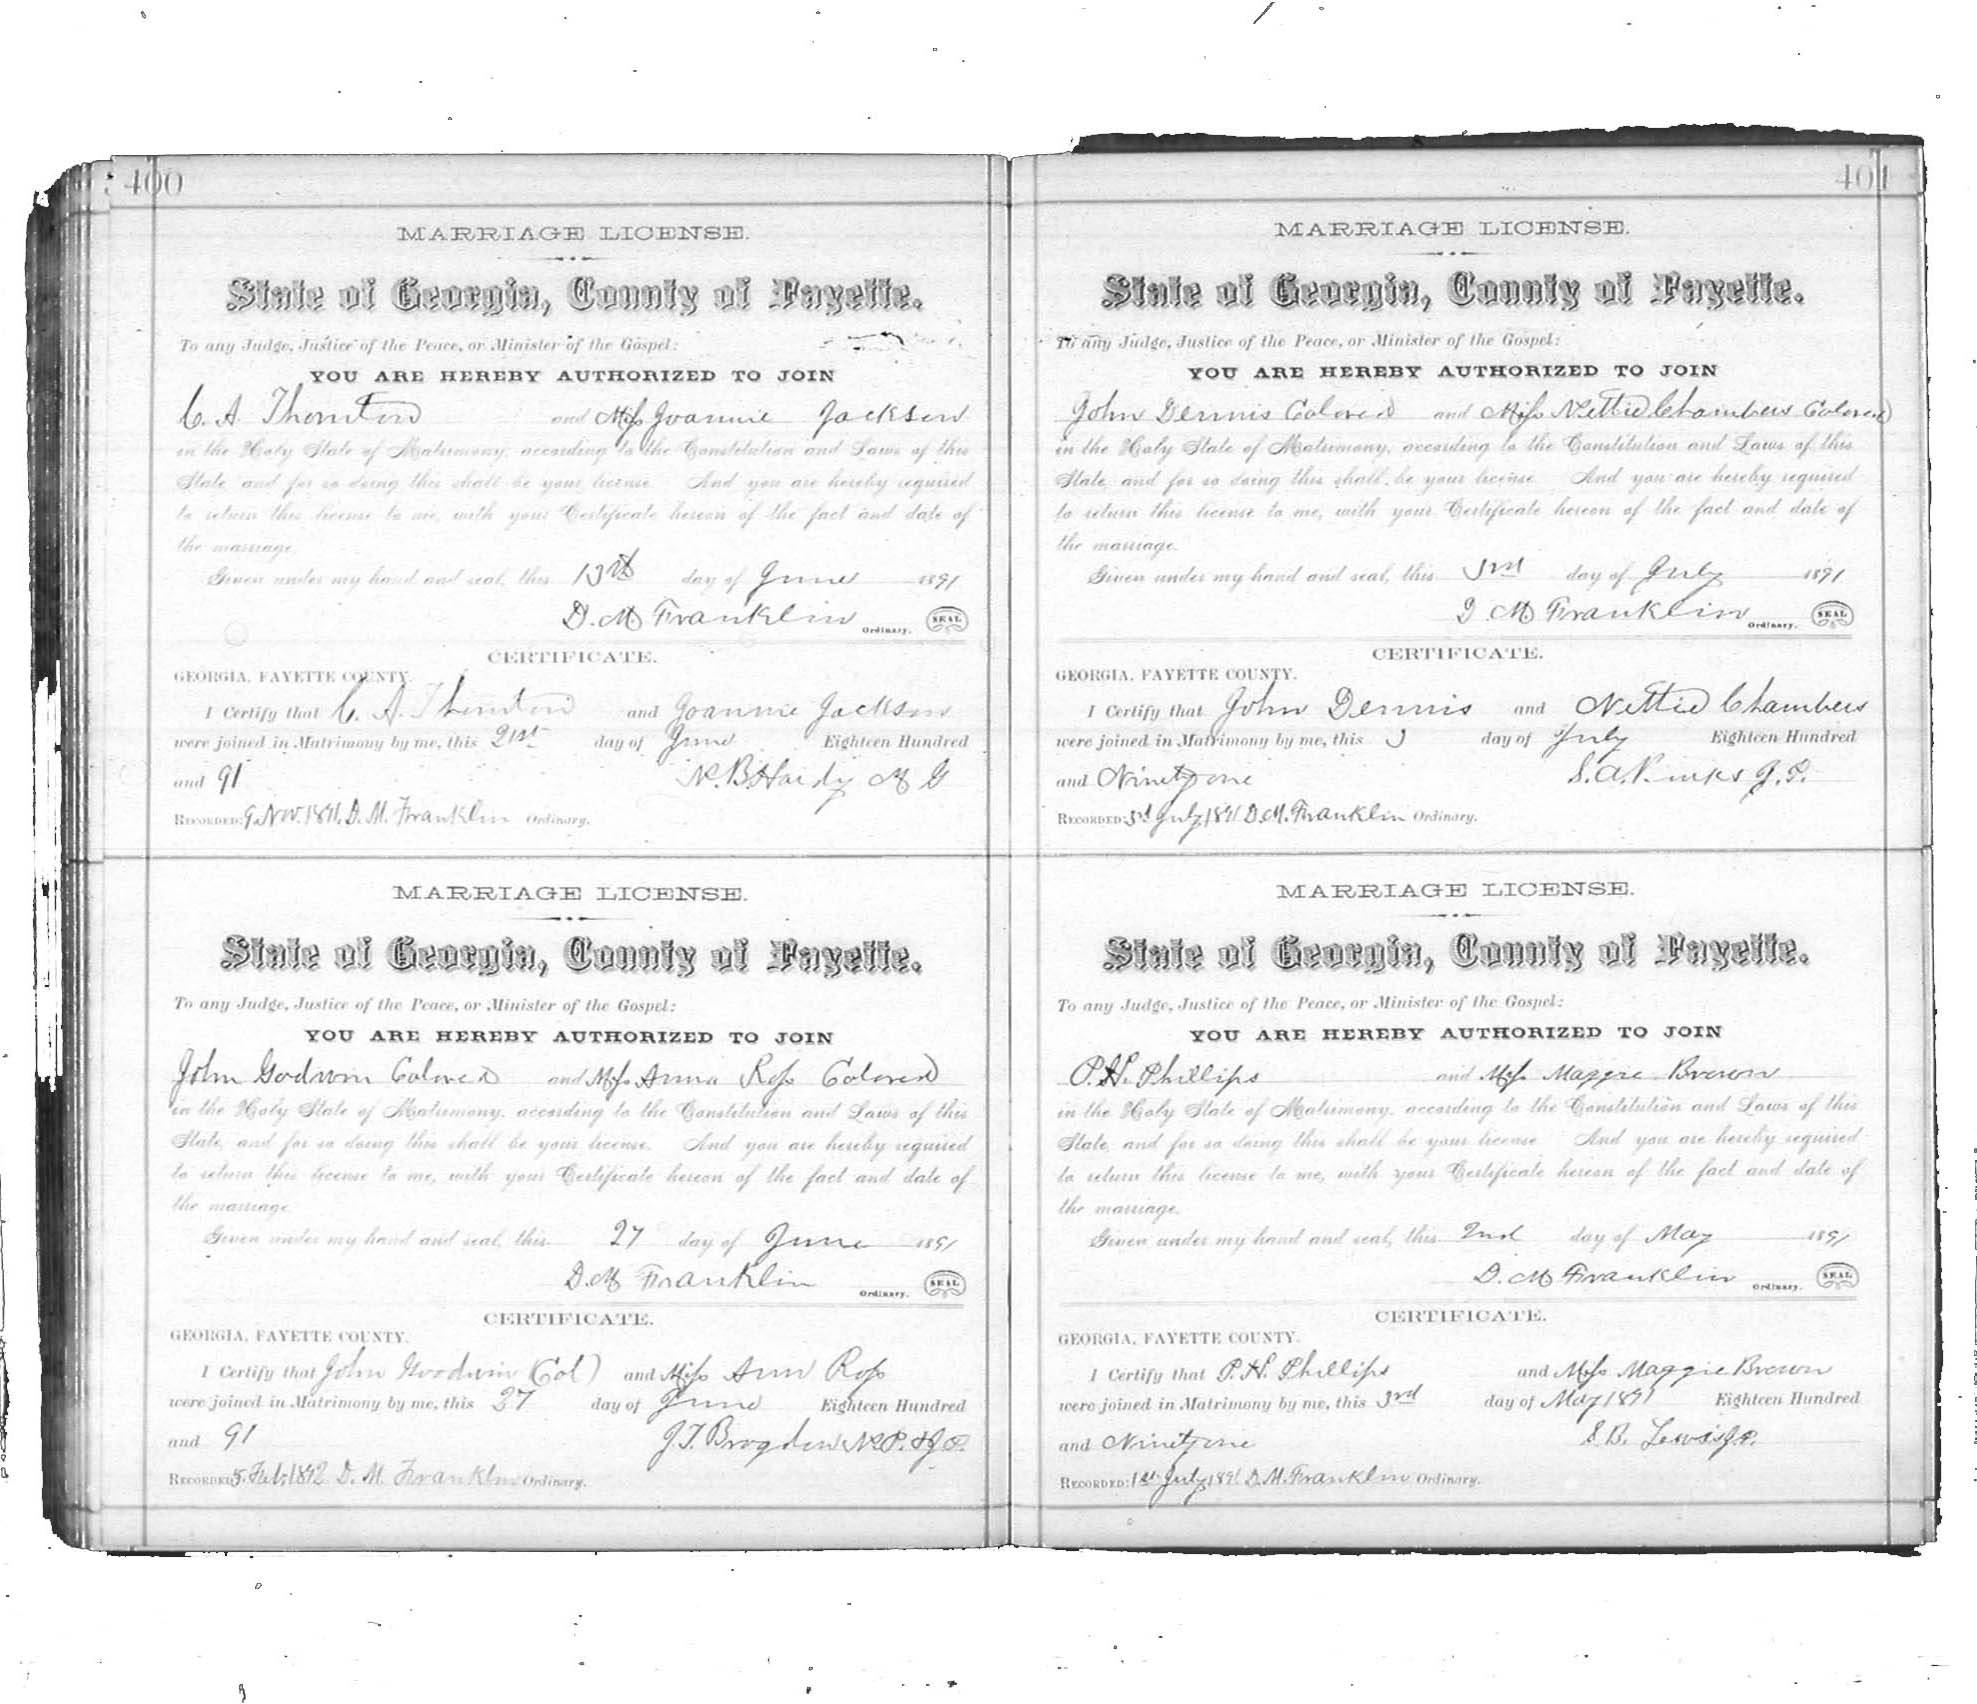 400
MARRIAGE LICENSE.
State of Georgia, County of Fayette.
To any Judge, Justice of the Peace, or Minister of the Gospel:
YOU ARE HEREBY AUTHORIZED TO JOIN
C. A. Thornton and Miss Joannie Jackson
in the Holy State of Matrimony, according to the Constitution and Laws of this
State, and for so doing this shall be your license. And you are hereby required
to return this license to me, with your Certificate hereon of the fact and date of
the marriage.
Given under my hand and seal, this 13th day of June 1891
D. M. Franklin Ordinary. SEAL
CERTIFICATE.
GEORGIA, FAYETTE COUNTY.
I Certify that C. A. Thornton and Joannie Jackson
were joined in Matrimony by me, this 21st day of June Eighteen Hundred
and 91 B Hardy M G
RECORDED: 9. Nov. 1891, D. M. Franklin Ordinary.
MARRIAGE LICENSE.
State of Georgia, County of Fayette.
To any Judge, Justice of the Peace, or Minister of the Gospel:
YOU ARE HEREBY AUTHORIZED TO JOIN
John Godwin Colored and Miss Anna Ross Colored
in the Holy State of Matrimony, according to the Constitution and Laws of this
State, and for so doing this shall be your license. And you are hereby required
to return this license to me, with your Certificate hereon of the fact and date of
the marriage.
Given under my hand and seal, this 27 day of June 1891
D. M Franklin Ordinary. SEAL
CERTIFICATE.
GEORGIA, FAYETTE COUNTY.
I Certify that John Goodwin (Col) and Miss Ann Ross
were joined in Matrimony by me, this 27 day of June Eighteen Hundred
and 91 J. T. Brogdon N. P. & J P.
RECORDED: 5. Feb. 1892 D. M. Franklin Ordinary.
401
MARRIAGE LICENSE.
State of Georgia, County of Fayette.
To any Judge, Justice of the Peace, or Minister of the Gospel:
YOU ARE HEREBY AUTHORIZED TO JOIN
John Dennis Colored and Miss Nettie Chambers Colored
in the Holy State of Matrimony, according to the Constitution and Laws of this
State, and for so doing this shall be your license. And you are hereby required
to return this license to me, with your Certificate hereon of the fact and date of
the marriage.
Given under my hand and seal, this 3rd day of July 1891
D. M Franklin Ordinary. SEAL
CERTIFICATE.
GEORGIA, FAYETTE COUNTY.
I Certify that John Dennis and Nettie Chambers
were joined in Matrimony by me, this 3 day of July Eighteen Hundred
and Ninety one S. A. J. P.
RECORDED: 3rd July, 1891 D. M. Franklin Ordinary.
MARRIAGE LICENSE.
State of Georgia, County of Fayette.
To any Judge, Justice of the Peace, or Minister of the Gospel:
YOU ARE HEREBY AUTHORIZED TO JOIN
P. H. Phillips and Miss Maggie Brown
in the Holy State of Matrimony, according to the Constitution and Laws of this
State, and for so doing this shall be your license. And you are hereby required
to return this license to me, with your Certificate hereon of the fact and date of
the marriage.
Given under my hand and seal, this 2nd day of May 1891
D. M Franklin Ordinary. SEAL
CERTIFICATE.
GEORGIA, FAYETTE COUNTY.
I Certify that P. H. Phillips and Miss Maggie Brown
were joined in Matrimony by me, this 3rd day of May 1891 Eighteen Hundred
and Ninety one S. B. Lewis J. P.
RECORDED: 1st July, 1891 D. M. Franklin Ordinary.